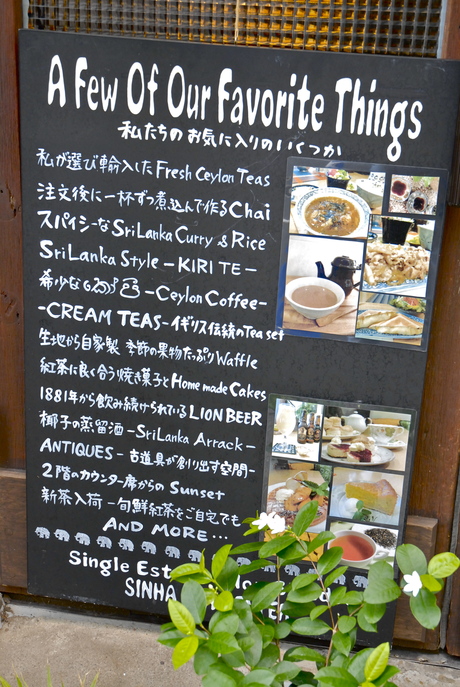 A Few Of Our Favorite Things
私たちのお気に入りのいくつか
私が選び輸入した Fresh Ceylon Teas
注文後に一杯ずつ煮込んで作る Chai
スパイシーな Sri Lanka Curry & Rice
Sri Lanka Style – KIRI TE –
希少な – Ceylon Coffee –
– CREAM TEAS – イギリス伝統の Tea set
生地から自家製 季節の果物たっぷり Waffle
紅茶に良く合う焼き菓子と Home made Cakes
1881年から飲み続けられている LION BEER
椰子の蒸留酒 – Sri Lanka Arrack –
ANTIQUES – 古道具が創り出す空間 –
2階のカウンター席からの Sunset
新茶入荷 – 旬鮮紅茶をご自宅でも
AND MORE...
Single Est
SINHA